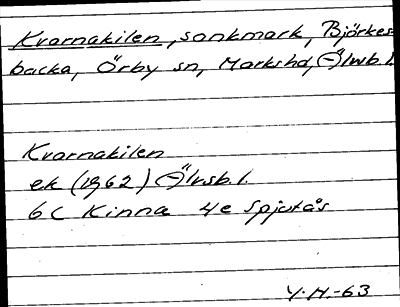 Kvarnakilen, sankmark, Björkes-
backa, Örby sn, Markshd, Älvsb. l.
Kvarnakilen
ek (1962) Älvsb. l.
6C Kinna 4e Spjutås
Y.H.-63